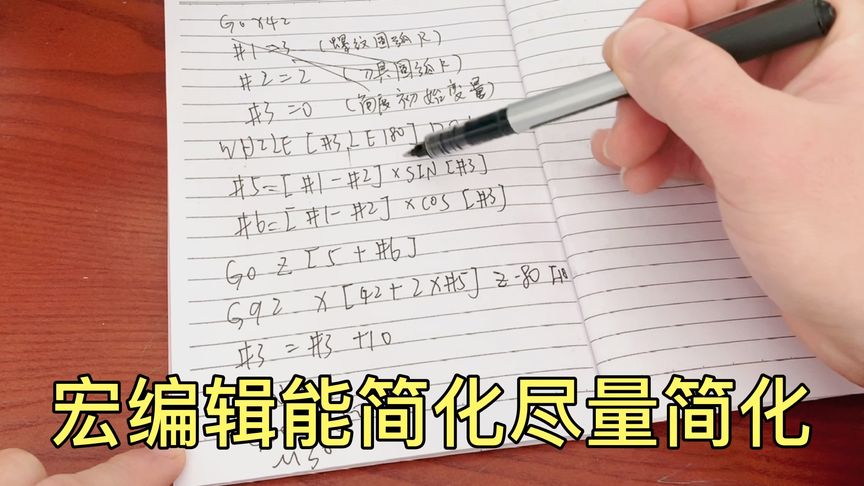 G0 X42
#1=3 (螺纹圆弧R)
#2=2 (刀具圆弧R)
#3=0 (角度初始变量)
WHILE [#3 LE 180]
#5=[#1-#2]×SIN[#3]
#6=[#1-#2]×COS[#3]
G0 Z[5+#6]
G92 X[42+2×#5] Z-80
#3=#3+10
宏编辑能简化尽量简化
M30